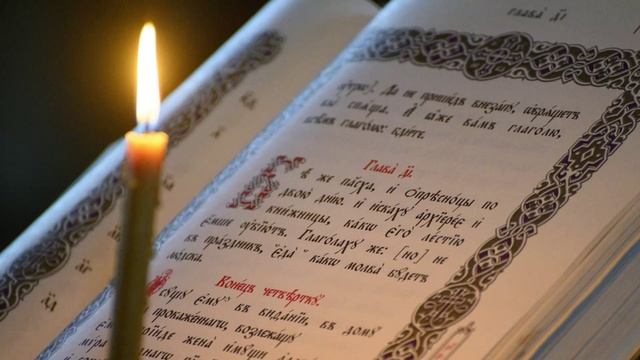 Глава д҃і
ᲂутро). Да не пришедъ внезапꙋ, ѡбрѧщетъ
вы спѧща. И ꙗже вамъ глаголю,
всѣмъ глаголю: бдите.
Глава д҃і.
Бѣ же пасха, и Опрѣсноцы по
двою дню. и искахꙋ архіерее и
книжницы, какѡ Єгѡ лестїю
ємше ᲂубїютъ. Глаголахꙋ же: [но] не
въ праздникъ, Єда какѡ молва бꙋдетъ
людска.
Конецъ четверткꙋ.
сꙋщꙋ Ємꙋ въ Виѳанїи, въ домꙋ
прокаженнагѡ, возлежащꙋ
прїиде жена имꙋщи
мѵра